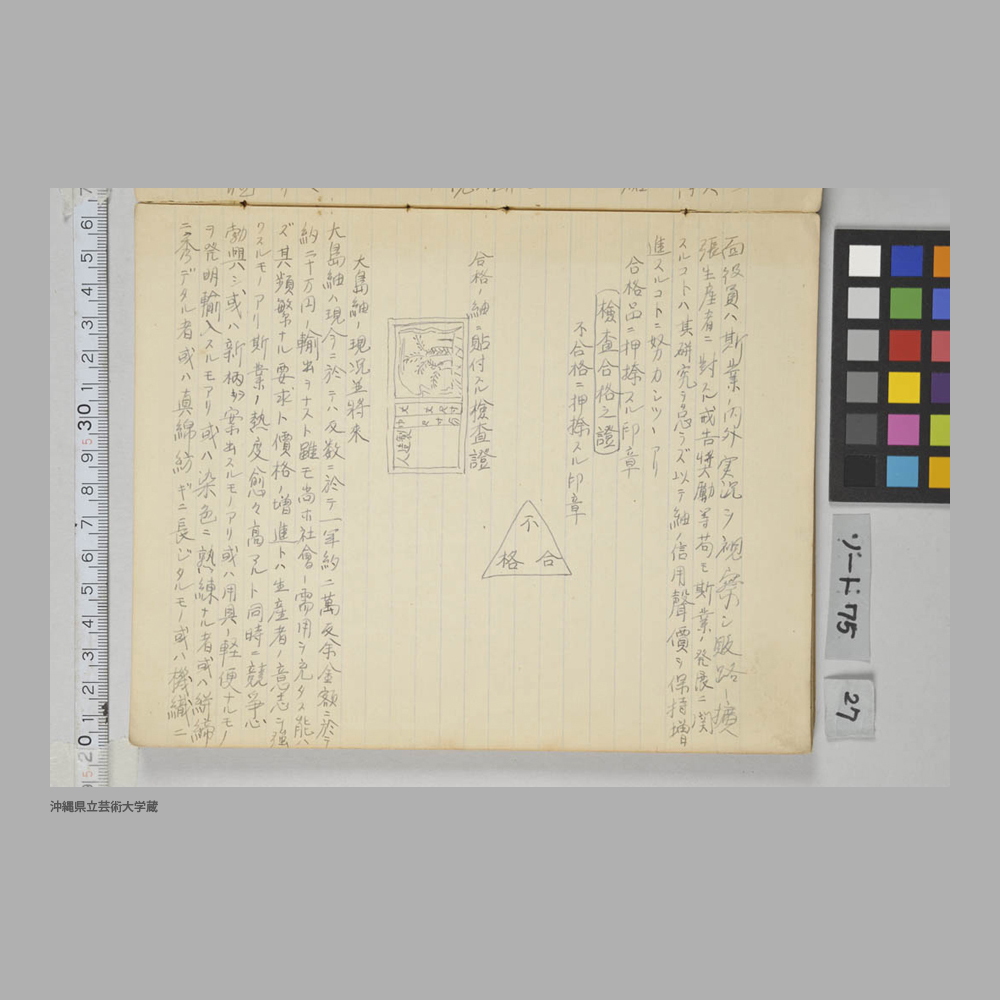 面役員ハ斯業ノ内外実況ヲ視察シ販路ノ擴
張生産者ニ対スル或吉奬勵等苟モ斯業ノ発展ニ関
スルコトハ其研究ヲ怠ラズ以テ紬ノ信用聲價ヲ保持増
進スルコトニ努力シツヽアリ
合格品ニ押捺スル印章
檢査合格之證
不合格ニ押捺スル印章
不合格
合格ノ紬ニ貼付スル檢査證
大島紬ノ現況並將来
大島紬ハ現今ニ於テハ反数ニ於テ一年約二萬反余金額ニ於テ
約二十万円ノ輸出ヲナスト雖モ尚ホ社會ノ需用ヲ充タス能ハ
ズ其頻繁ナル要求ト價格ノ増進トハ生産者ノ意志ヲ強
クスルモノアリ斯業ノ熱度愈々高マルト同時ニ競争心
勃興シ或ハ新柄ヲ案出スルモノアリ或ハ用具ノ軽便ナルモノ
ヲ発明輸入スルモノアリ或ハ染色ニ熟練ナル者或ハ絣締
ニ秀デタル者或ハ真綿紡ギニ長ジタルモノ或ハ機織ニ
ゾード75
27
沖縄県立芸術大学蔵